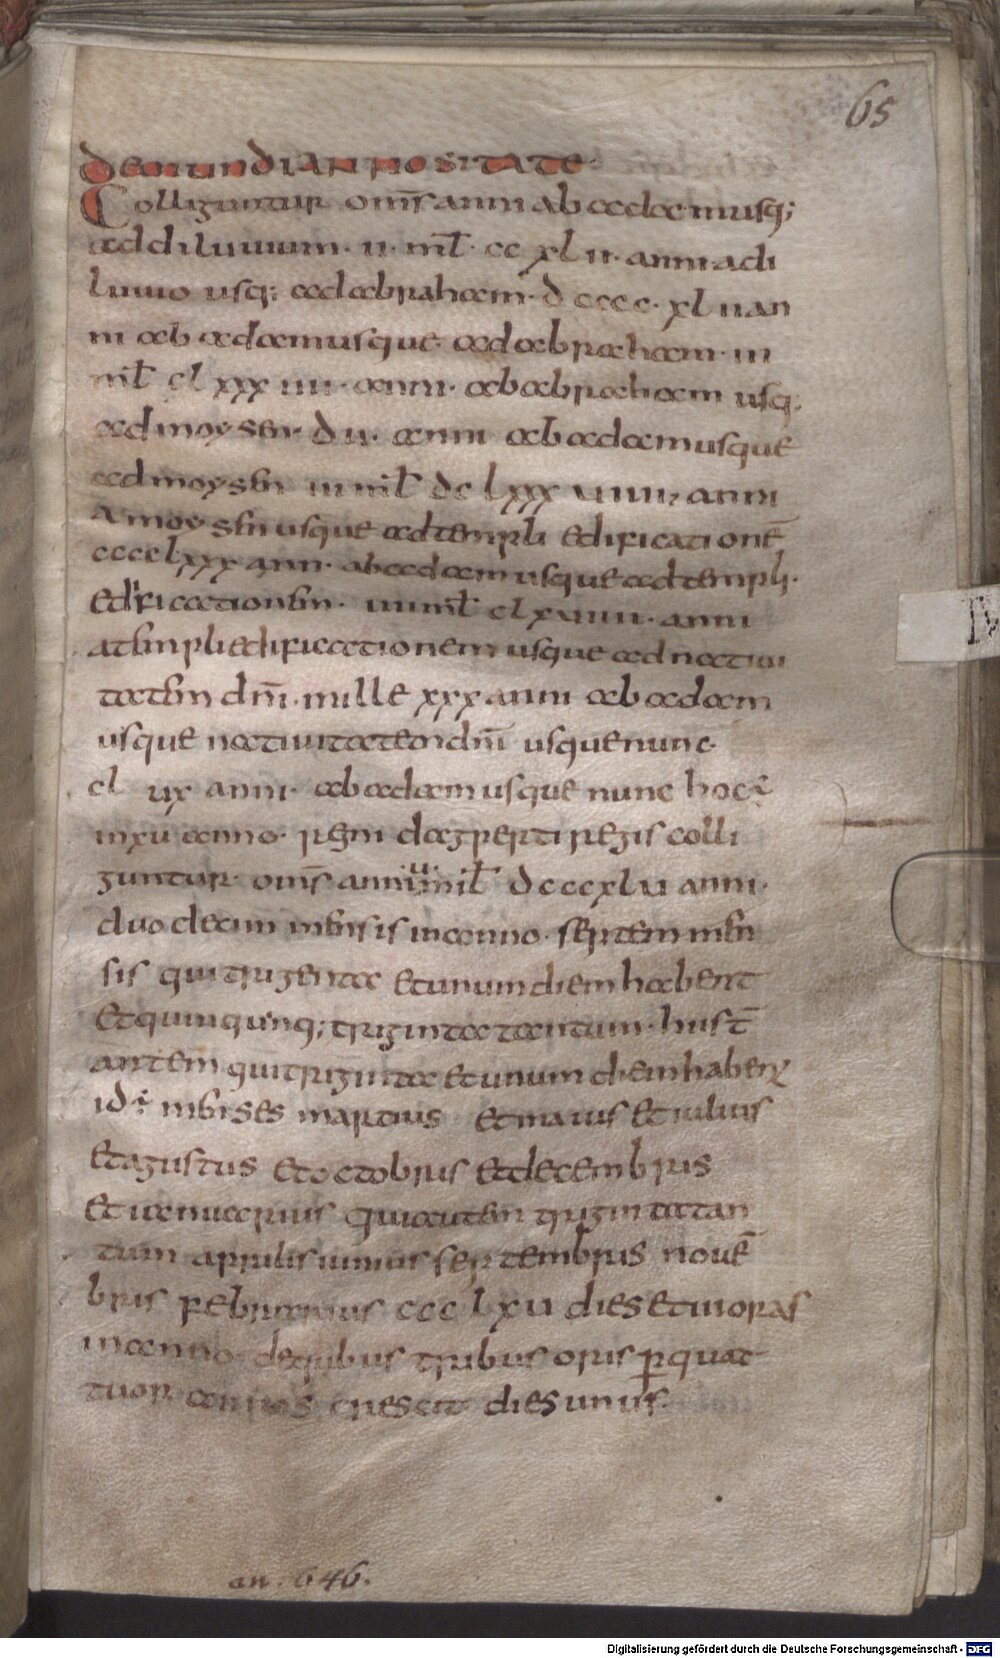 65
de mundi annositate·
Colliguntur om̅s anni ab adam usq;
ad diluuium· ii· mil̅· cc xl ii· anni· a di
luuio usq; ad abraham· dcccc· xl ii an
ni ab adam usque· ad abraham· iii
mil̅ cl xxx iiii· anni· ab abraham usq;
ad moysen· d u· anni ab adam usque
ad moysen iii mil̅ dc lxxx uiiii· anni
a moysen usque ad templi edificationē
cccclxxx ann· ab adam usque ad templi·
edificationem· iiii mil̅ clxuiiii· anni
a templi edificationem usque ad natiui
tatem dn̅i· mille xxx anni ab adam
usque natiuitatem dn̅i usque nunc·
cl ux anni· ab adam usque nunc hoc ·i·
in xu anno· regni dagperti regis colli
guntur· om̅s anni u· mil̅ dcccxlu anni·
duo decim mensis in anno· septem men
sis qui trigenta et unum diem habent
et quinqu; triginta tantum· hii s̅t
autem qui triginta et unum diem habent
id ·i· menses martius et maius et iulius
et agustus et octobrius et decembrius
et ianuarius qui autem triginta tan
tum aprilis iunius septembrius nouē
brius februarius ccc lxu dies et ui oras
in anno· de quibus tribus oris p̱ quat
tuor annos crescit dies unus·
an. 646.
Digitalisierung gefördert durch die Deutsche Forschungsgemeinschaft - DFG